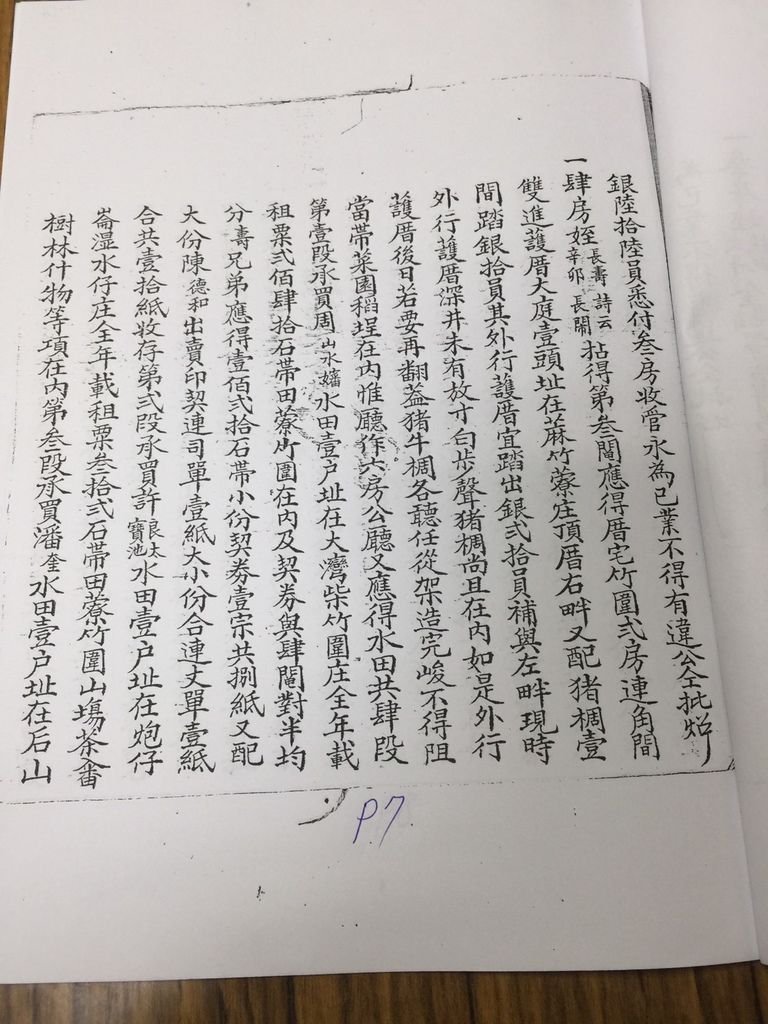 銀陸拾陸員悉付叁房收管永為己業不得有違公仝批炤
一肆房姪長壽詩云辛卯長鬧拈得第叁鬮應得厝宅竹圍弍房連角間
雙進護厝大庭壹頭址在蔴竹藔庄頂厝右畔又配猪椆壹
間踏銀拾員其外行護厝宜踏出銀弍拾員補與左畔現時
外行護厝深井未有放寸白步聲猪椆尚且在內如是外行
護厝後日若要再翻蓋猪牛椆各聽任從架造完峻不得阻
當帶菜園稻埕在內惟廳係六房公廳又應得水田共肆段
第壹段承買周山水嬸水田壹户址在大灣柴竹圍庄全年載
租粟弍佰肆拾石帶田藔竹圍在內及契券與肆鬮對半均
分壽兄弟應得壹佰弍拾石帶小份契券壹宗共捌紙又配
大份陳德和出賣印契連司單壹紙大小份合連丈單壹紙
合共壹拾紙收存第弍段承買許良太寶池水田壹户址在炮仔
崙湿水仔庄全年載租粟叁拾弍石帶田藔竹圍山塲茶畬
樹林什物等項在內第叁段承買潘奎水田壹户址在后山
P7